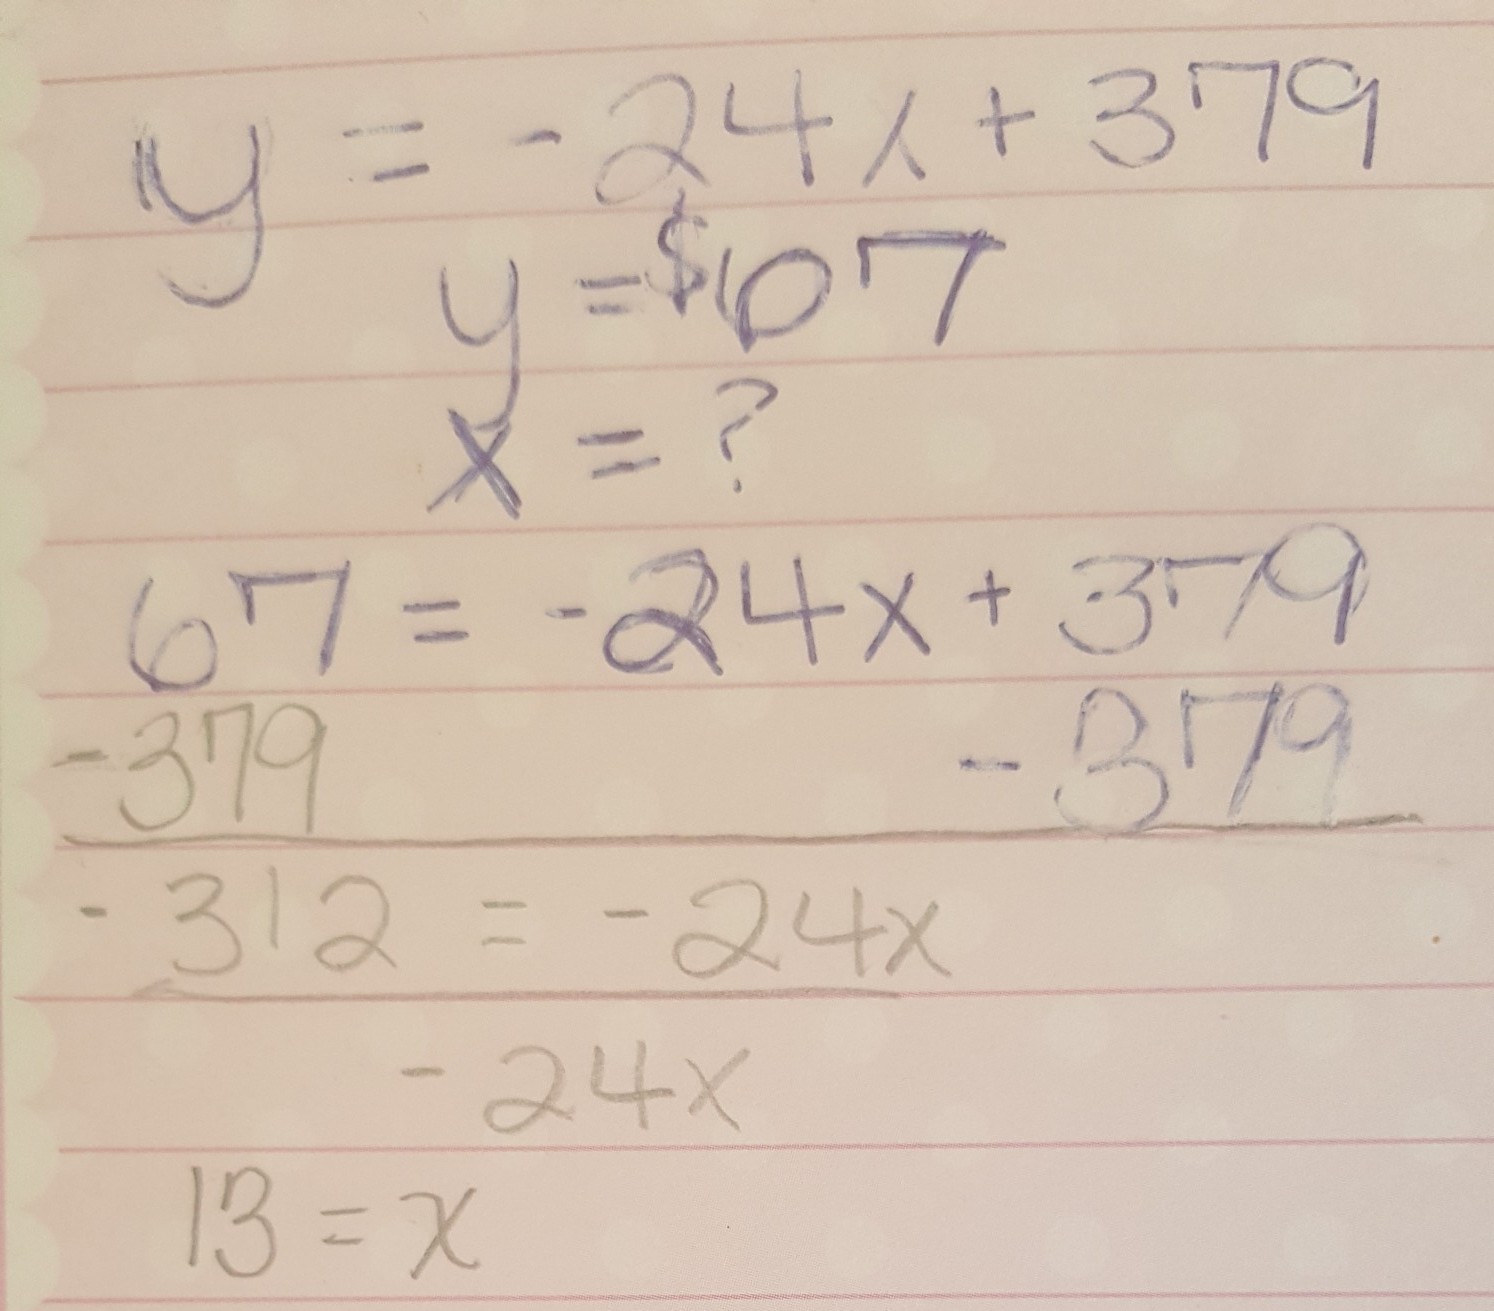 y = -24x + 379
y = $67
x = ?
67 = -24x + 379
-379 - 379
- 312 = - 24x
- 24x
13 = x